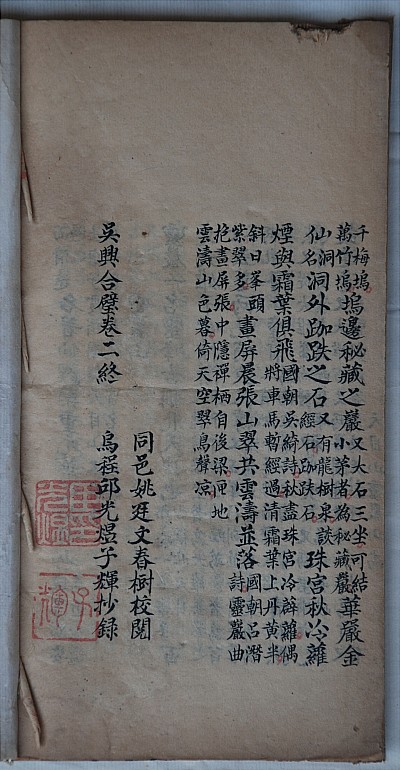 千梅塢萬竹塢塢邊秘藏之巖又大石三坐可結小茅者為秘藏巖華嚴金
仙洞名洞外跏趺之石又有龍樹泉談經石跏趺石珠宮秋冷蘿
煙與霜葉俱飛國朝吳綺詩秋盡珠宮冷薜蘿偶將車馬暫經過清霜葉上丹黃半
斜日峯頭紫翠多畫屏晨張山翠共雲濤並落國朝呂潛詩靈巖曲
抱畫屏張中隱禪栖自後梁匝地
雲濤山色暮倚天空翠鳥聲凉
同邑姚廷文春樹校閱
吳興合璧卷二終
烏程邱光煜子輝抄錄
子輝